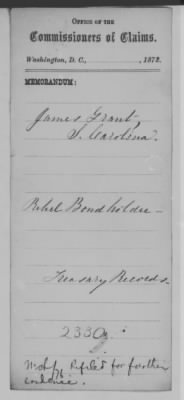 OFFICE OF THE
Commissioners of Claims.
Washington, D. C., , 1872.
MEMORANDUM:
James Grant,
S. Carolina.
Rebel Bondholder —
Treasury Records.
2330
Refiled for further
evidence.